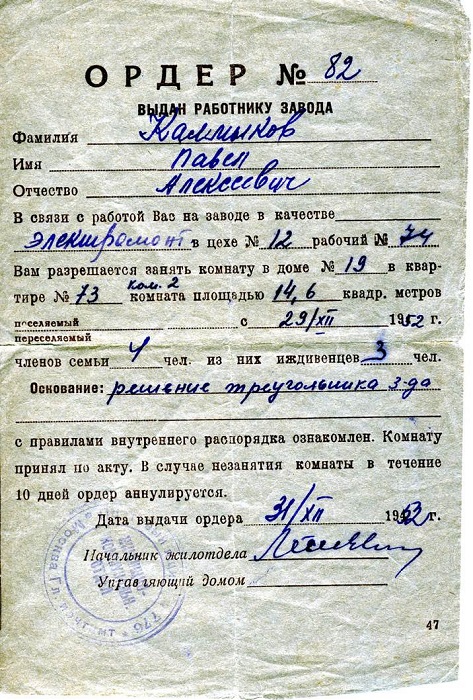 ОРДЕР № 82
ВЫДАН РАБОТНИКУ ЗАВОДА
Фамилия Калмыков
Имя Павел
Отчество Алексеевич
В связи с работой Вас на заводе в качестве
электромонт в цехе № 12 рабочий № 74
Вам разрешается занять комнату в доме № 19 в квар-
тире № 73 ком. 2 комната площадью 14,6 квадр. метров
поселяемый с 29/XII 1952 г.
переселяемый
членов семьи 4 чел. из них иждивенцев 3 чел.
Основание: решение треугольника з-да
с правилами внутреннего распорядка ознакомлен. Комнату
принял по акту. В случае незанятия комнаты в течение
10 дней ордер аннулируется.
Дата выдачи ордера 31/XII 1952 г.
Начальник жилотдела
Управляющий домом
47